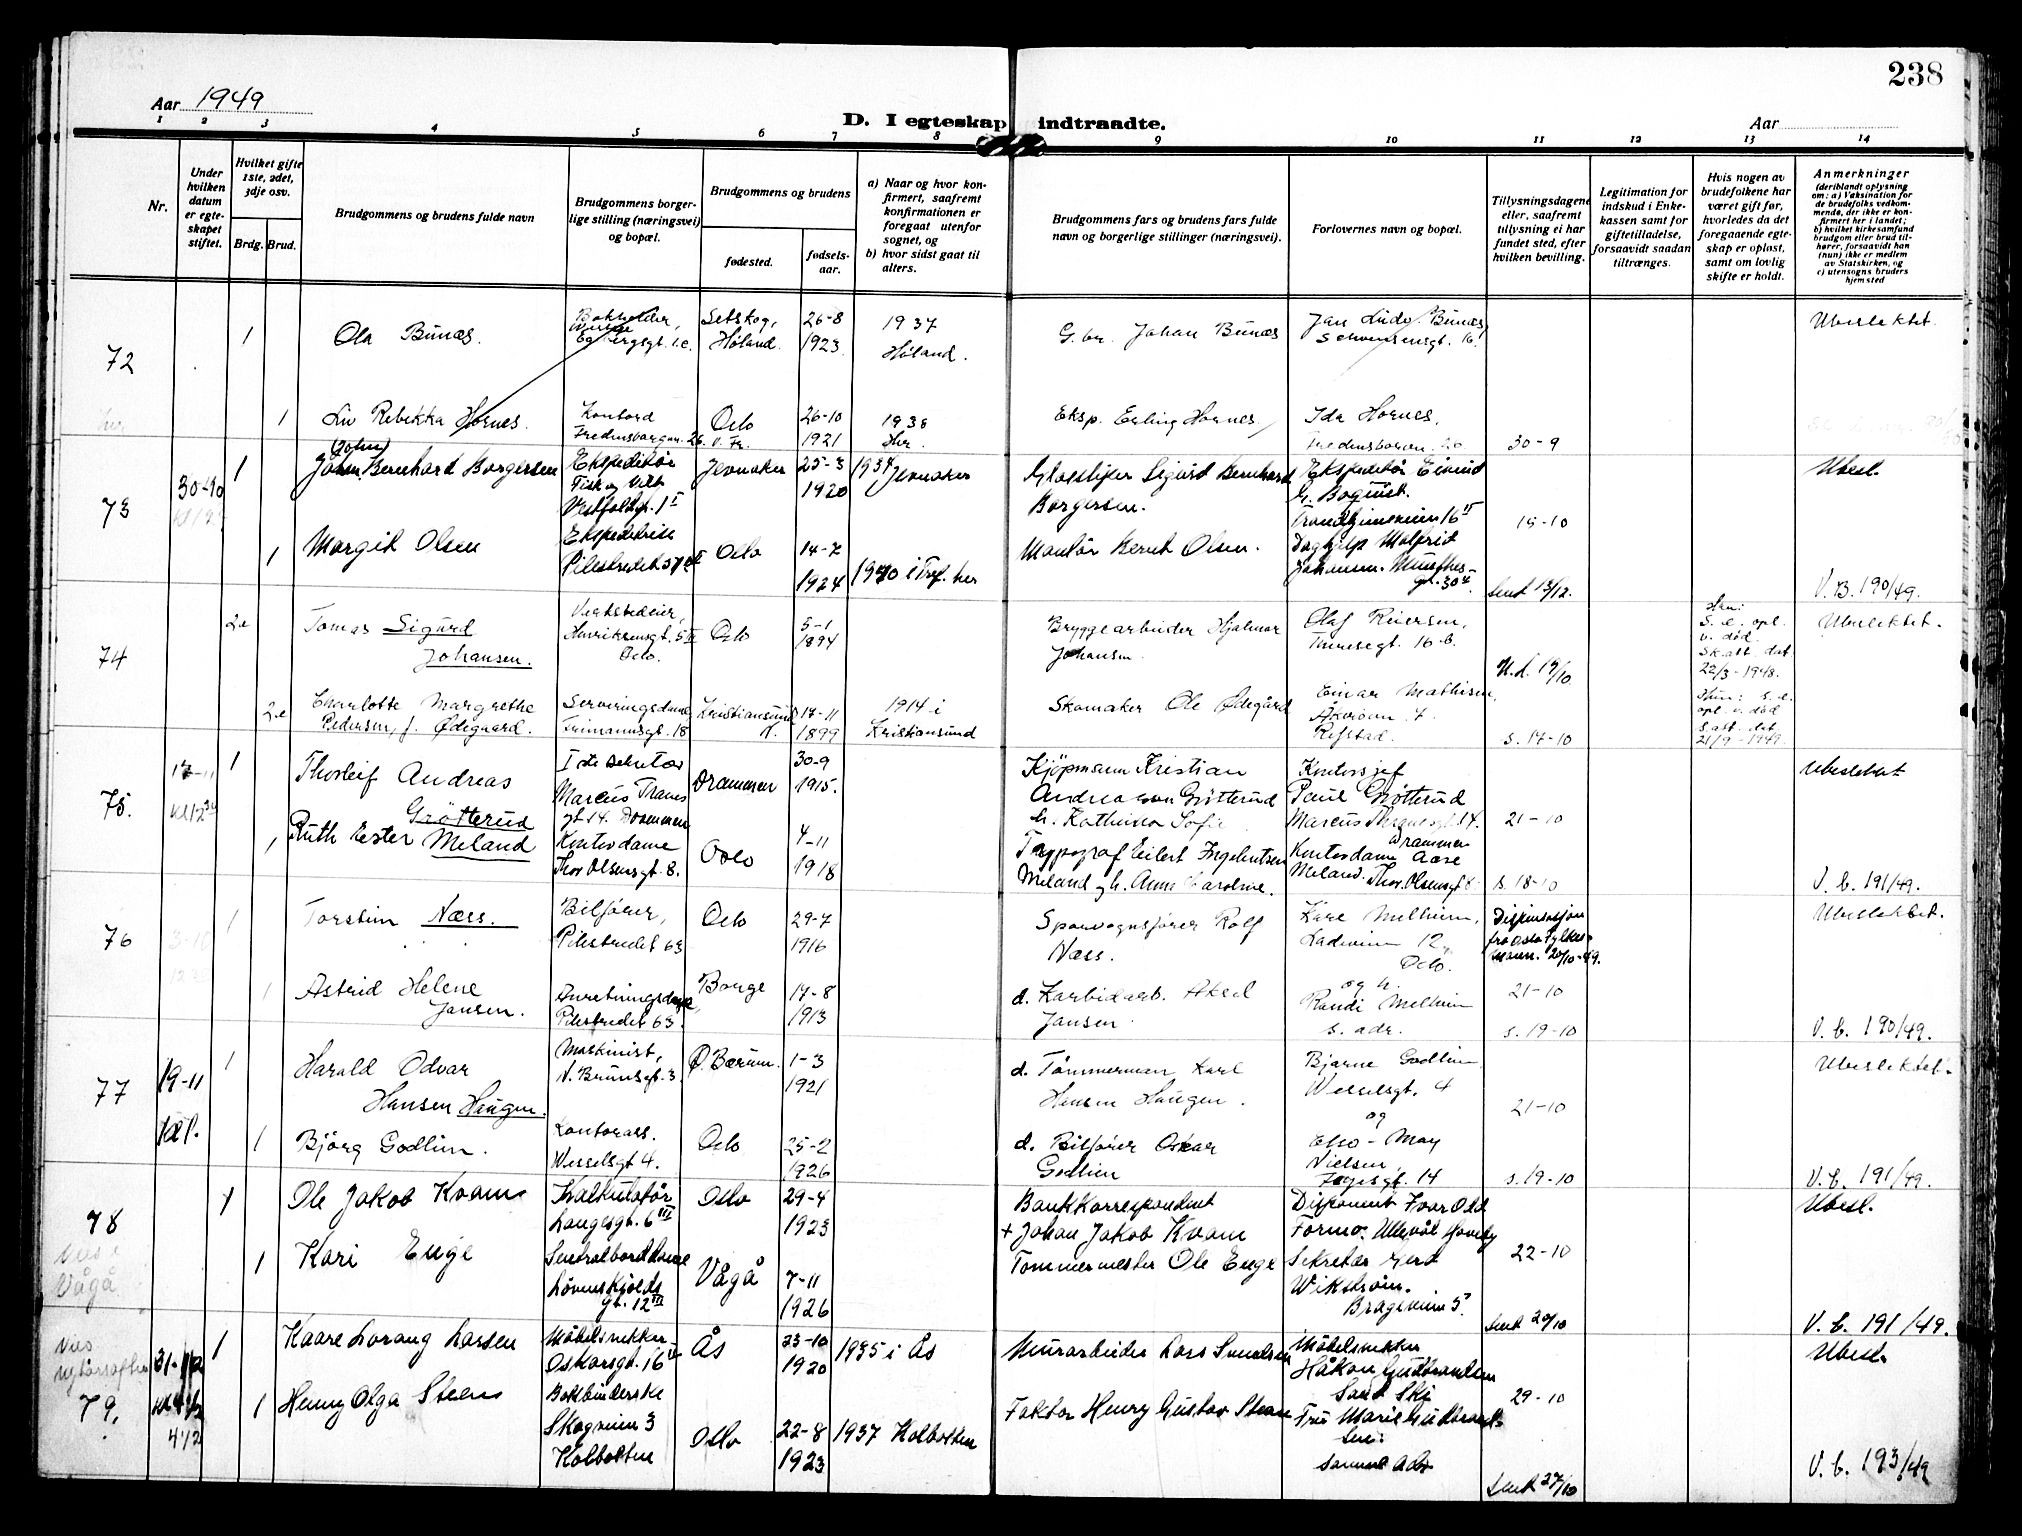 238
Aar 1949
D. I egteskap indtraadte.
Aar
1 2 3 4 5 6 7 8 9 10 11 12 13 14
Nr.
Under hvilken datum er egteskapet stiftet.
Hvilket gifte 1ste, 2det, 3dje osv.
Brdg. Brud.
Brudgommens og brudens fulde navn
Brudgommens borgerlige stilling (næringsvei) og bopæl.
Brudgommens og brudens
fødested.
fødselsaar.
a) Naar og hvor konfirmert, saafremt konfirmationen er foregaat utenfor sognet, og
b) hvor sidst gaat til alters.
Brudgommens fars og brudens fars fulde navn og borgerlige stillinger (næringsvei).
Forlovernes navn og bopæl.
Tillysningsdagene eller, saafremt tillysning ei har fundet sted, efter hvilken bevilling.
Legitimation for indskud i Enkekassen samt for giftetilladelse, forsaavidt saadan tiltrænges.
Hvis nogen av brudefolkene har været gift før, hvorledes da det foregaaende egteskap er opløst, samt om lovlig skifte er holdt.
Anmerkninger
(deriblandt oplysning om: a) Vaksination for de brudefolks vedkommende, der ikke er konfirmert her i landet; b) hvilket kirkesamfund brudgom eller brud tilhører, forsaavidt han (hun) ikke er medlem av Statskirken, og c) utensogns bruders hjemsted
72
1 Ola Bunæs.
Bokholder,
Setskog, Høland.
26-8 1923
1937 Høland.
G.br. Johan Bunæs
Jan Ludv. Bunæs
Schwensensgt. 16
Ubeslektet.
1 Liv Rebekka Hornes.
Kontord
Fredensborgvn. 26.
Oslo
26-10 1921
1938 Her.
Eksp. Erling Hornes
Ida Hornes,
30-9
73
30-10
1 (John)
Johan Bernhard Borgersen
Ekspeditør
Fisk og Vilt
Vestfoldgt. 1 I
Jevnaker
25-3 1920
1934 Jevnaker
Glassliper Sigurd Bernhard Borgersen.
Ekspeditør Eivind G. Boquist.
Trondhjemsveien 16 II
15-10
Ubesl.
1 Margit Olsen
Ekspeditrise
Pilestredet 57
Oslo
14-7 1924
1940 i Tref. her
Montør Bernt Olsen.
Daghjelp Malfrid Johansen. Munthesgt. 30 4
Sent 14/12.
V.B. 190/49.
74
2e Tomas Sigurd Johansen.
Verkstedeier,
Henriksensgt. 5 II
Oslo.
Oslo
5-1 1894
Bryggearbeider Hjalmar Johansen
Olaf Reiersen,
Theresegt. 16 b
N.d. 19/10
Han: S.e. opl. v. død.
Sk.att. dat. 22/3-1948.
Ubeslektet.
2e Charlotte Margrethe Pedersen, f. Ødegaard.
Serveringsdame
Frimannsgt. 18
Kristiansund N.
17-11 1899
1914 i Kristiansund
Skomaker Ole Ødegård
Einar Mathisen,
Åkerøvn. 4.
Refstad.
s. 17-10
Hun: s.e. opl. v. død
s.att. dat. 21/9-1949.
75.
17-11
1 Thorleif Andreas Grøtterud
1ste sekretær
Marcus Tranes gt. 14. Drammen
Drammen
30-9 1915.
Kjöpmann Kristian Andreassen Grøtterud h. Kathinka Sofie
Kontorsjef
Paul Grøtterud
Marcus Thranesgt. 14. Drammen
21-10
Ubeslektet
1 Ruth Ester Meland
Kontordame
Thor Olsensgt. 8.
Oslo
4-11 1918
Typograf Eilert Ingebretsen Meland og h. Anna Karoline.
Kontordame Aase Meland. Thor Olsensgt 8
s. 18-10
V.b. 191/49.
76
1 Torstein Næss.
Bilfører,
Pilestredet 63
Oslo
29-7 1916
Sporvognsfører Rolf Næss.
Kåre Melheim,
Ladeveien 12,
Oslo.
Dispensasjon fra Oslo Fylkesmann. 20/10-49.
Ubeslektet.
1 Astrid Helene Jansen.
Anretningsdame,
Pilestredet 63.
Borge
17-8 1913
d. Karbidarb. Aksel Jansen.
og h.
Randi Melheim
s. adr.
21-10
s. 19-10
V.b. 190/49.
77
19-11
kl 1.
1 Harald Odvar Hansen Haugen.
Maskinist,
N. Brunsgt. 3
Ø. Bærum.
1-3 1921
d. Tömmerman Karl Hansen Haugen.
Bjarne Godlien
Wesselsgt. 4
og
21-10
Ubeslektet.
1 Björg Godlien.
Kontorass.
Wesselsgt 4.
Oslo
25-2 1926
d. Bilfører Oskar Godlien
Else-May Nielsen,
gt. 14
s. 19-10
V.b. 191/49.
78
Vies i Vågå
1 Ole Jakob Kvam
Kalkulatør
Langesgt. 6 III
Oslo
29-4 1923
Bankkorrespondent
+ Johan Jakob Kvam
Disponent Ivar Odd Formo. Ullevål Haveby
22-10
Ubesl.
1 Kari Enge
Sentralborddame
Løvenskjolds gt. 12 III
Vågå
7-11 1926
Tømmermester Ole Enge
Sekretær Gerd Wikstrøm.
Brageveien 5
Sent 20/10
V.b. 191/49.
79.
Vies nyttårsaften
31-12
kl 4 1/2
4 1/2
1 Kaare Lorang Larsen
Møbelsnekker
Oskarsgt. 16 II
Ås
23-10 1920
1935 i Ås
Murarbeider Lars Svendsen
Møbelsnekker
Håkon Gudbrandsen
Sand Ski
29-10
Ubesl.
1 Henny Olga Steen
Bokbinderske
Skogveien 3
Kolbotten
Oslo
22-8 1923
1937 Kolbotten
Faktor Henry Gustav Steen
Fru Marie Gudbrandsen.
samme Adr
Sent 27/10
V.b. 193/49